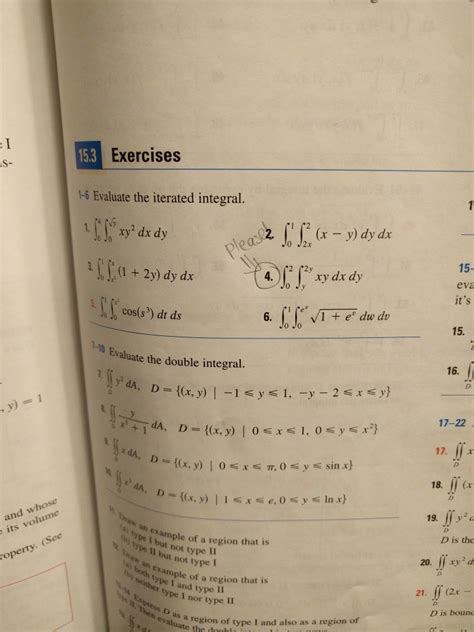 : I
s-
15.3 Exercises
1–6 Evaluate the iterated integral.
1. ∫₀⁴ ∫₀^√y xy² dx dy
Please!
2. ∫₀¹ ∫₂ₓ² (x − y) dy dx
3. (1 + 2y) dy dx
4. ∫₀² ∫_y^2y xy dx dy
5. cos(s³) dt ds
6. ∫₀¹ ∫₀^eᵛ √1 + eᵛ dw dv
–10 Evaluate the double integral.
7. ∬_D y² dA, D = {(x, y) | −1 ≤ y ≤ 1, −y − 2 ≤ x ≤ y}
8. ∬_D y / x⁵ + 1 dA, D = {(x, y) | 0 ≤ x ≤ 1, 0 ≤ y ≤ x²}
9. ∬_D x dA, D = {(x, y) | 0 ≤ x ≤ π, 0 ≤ y ≤ sin x}
10. ∬_D x³ dA, D = {(x, y) | 1 ≤ x ≤ e, 0 ≤ y ≤ ln x}
11. Draw an example of a region that is
(a) type I but not type II
(b) type II but not type I
12. Draw an example of a region that is
(a) both type I and type II
(b) neither type I nor type II
14 Express D as a region of type I and also as a region of
type II. Then evaluate the double
, y) = 1
and whose
its volume
roperty. (See
15–
eva
it's
15.
16.
17–22
17. ∬_D x
18. ∬_D (x
19. ∬_D y²
D is the
20. ∬_D xy²
21. ∬_D (2x −
D is bounc